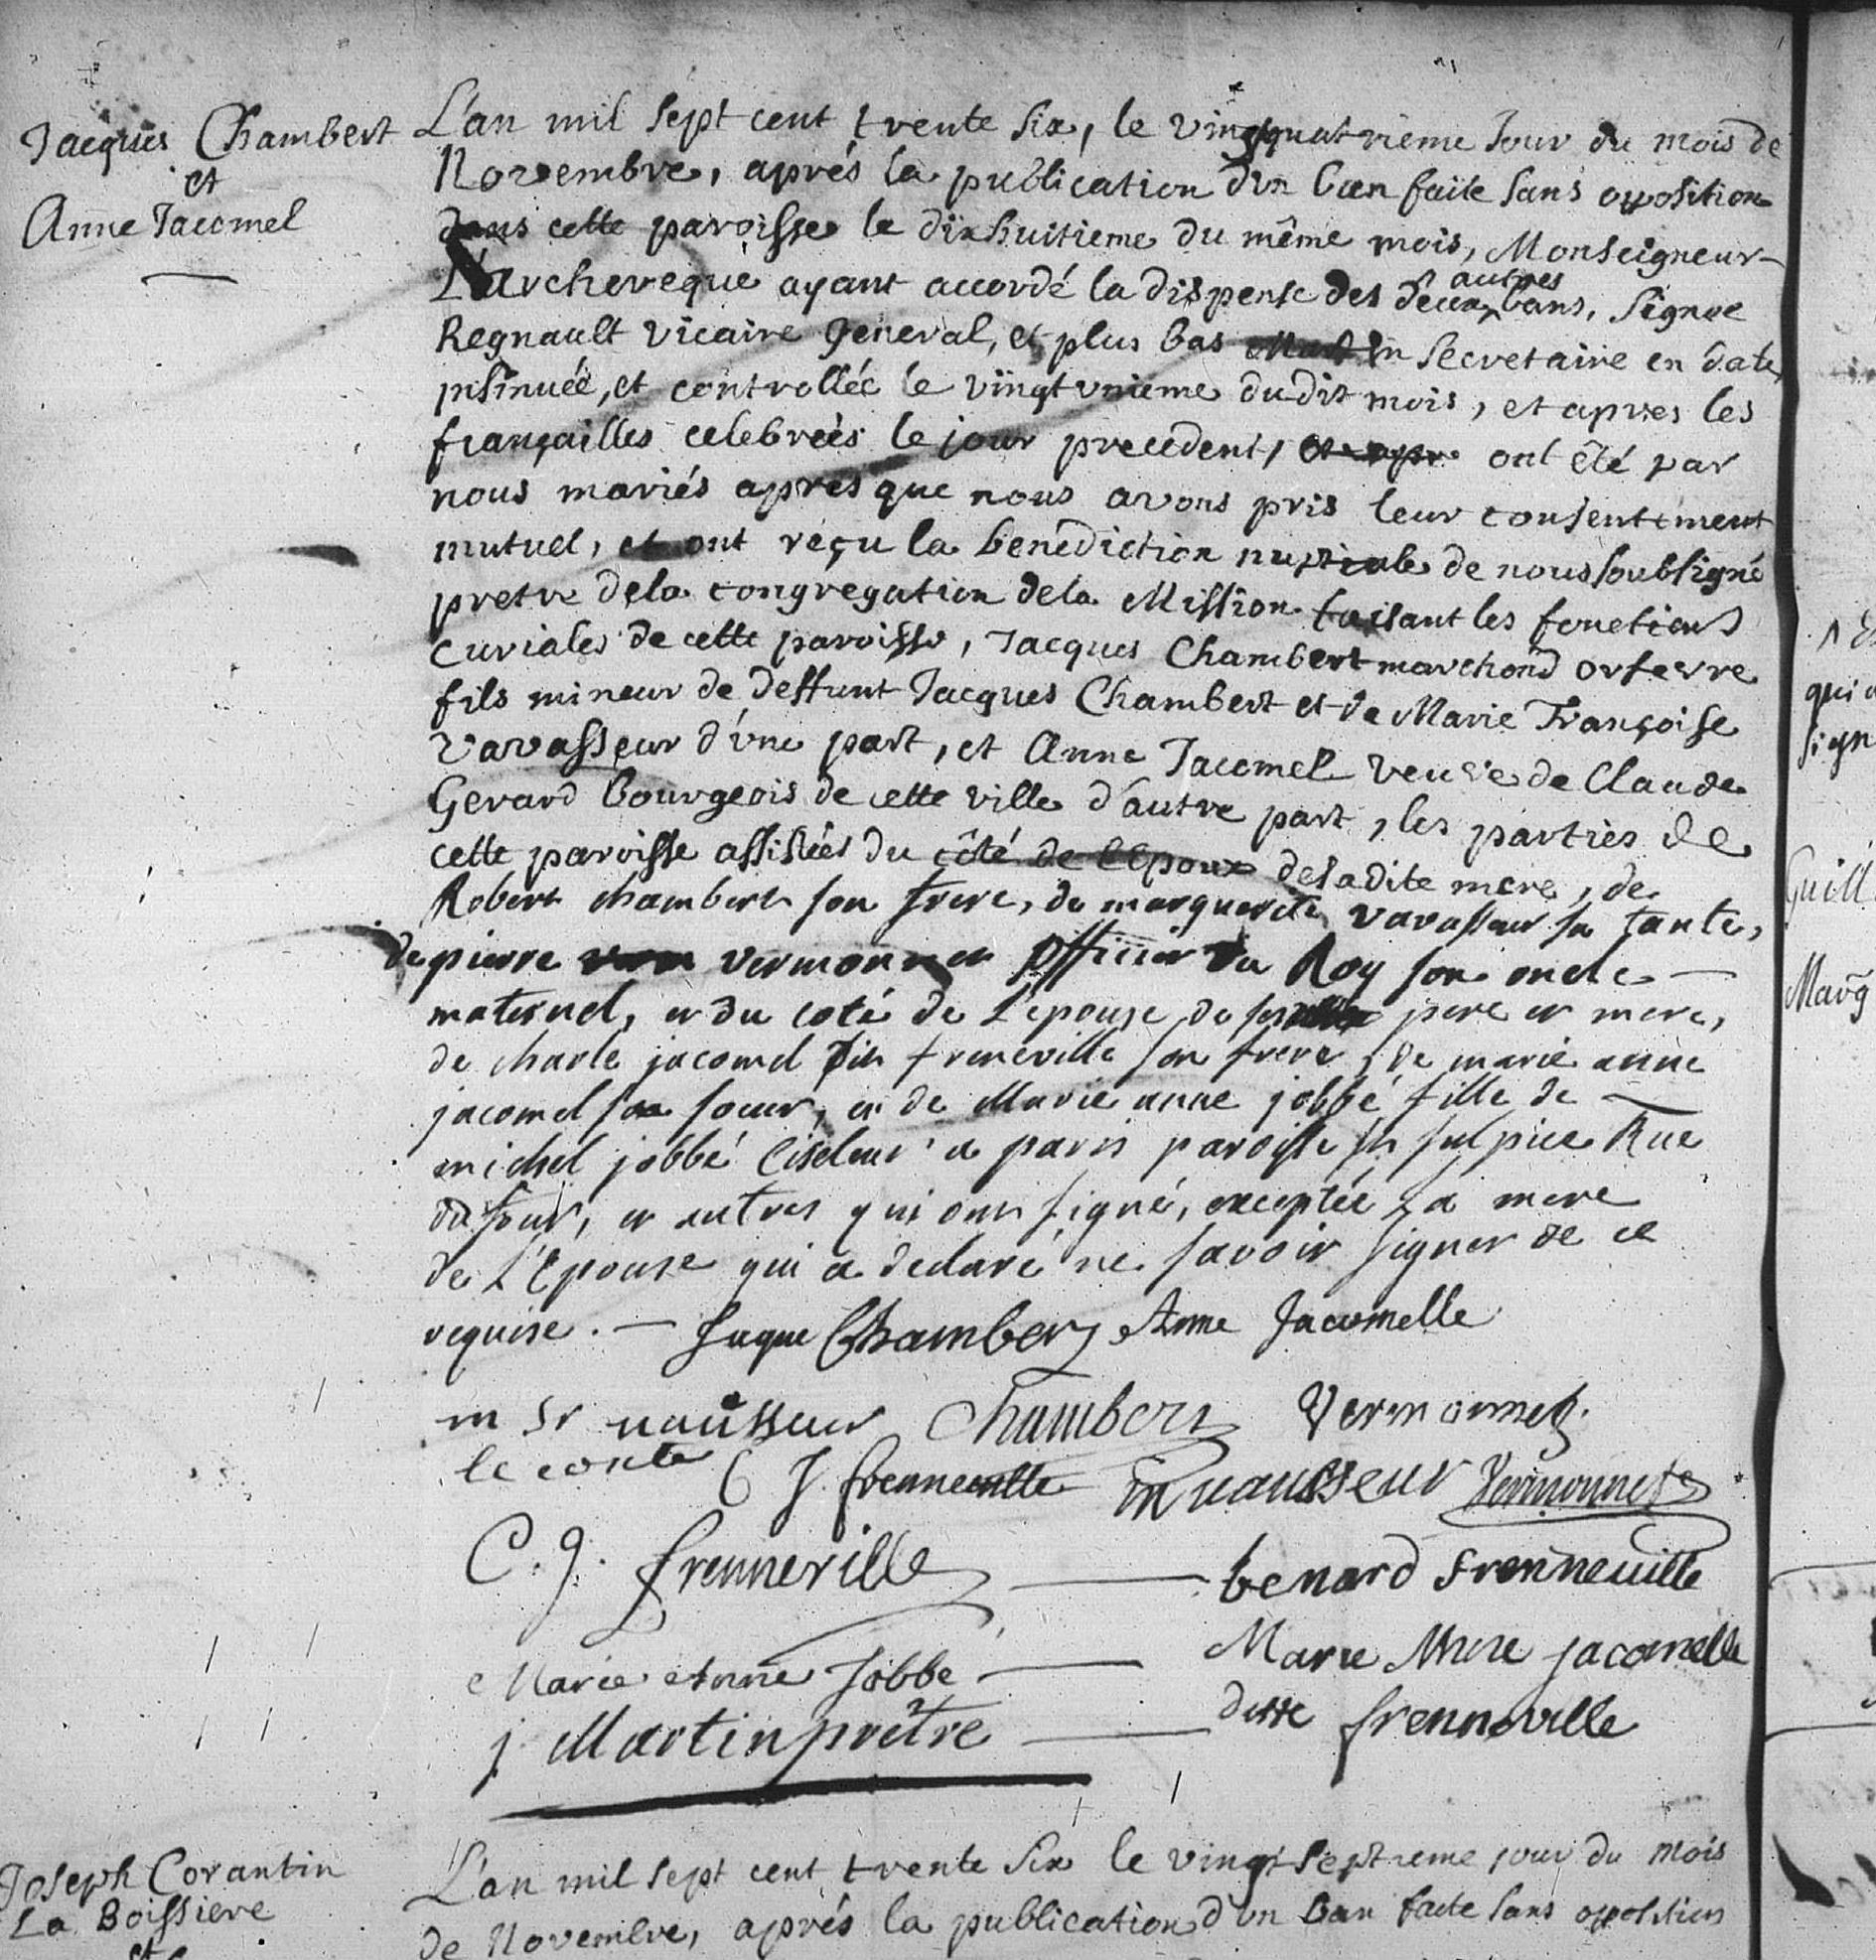 Jacques Chambert
et
Anne Jacomel
L'an mil sept cent trente six, le vingtquatrieme Jour du mois de
Novembre, aprés la publication d'un ban faite sans oposition
dans cette paroisse le dixhuitieme du même mois, Monseigneur
L'archeveque ayant accordé la dispense des deux autres bans, Signée
Regnault vicaire General, et plus bas Martin Secretaire en date,
insinuée, et controllée le vingt unieme dudit mois, et apres les
françailles celebreés le jour precedent, ont êté par
nous mariés apres que nous avons pris leur consentement
mutuel, et ont reçu la benediction nuptiale de nous soubsigné
pretre dela congregation dela Mission faisant les fonctions
curiales de cette paroisse, Jacques Chambert marchand orfevre
fils mineur de deffunt Jacques Chambert et de Marie Françoise
Vavasseur d'une part, et Anne Jacomel veuve de Claude
Gerard bourgeois de cette ville d'autre part, les parties de
cette paroisse assistées du côté de l'Epoux deladite mere, de
Robert chambert son frere, de marguerite vavasseur sa tante,
de pierre vermonnet officier du Roy son oncle
maternel, et du coté de L'epouse de ses pere et mere,
de charle jacomel dit freneville son frere, de marie anne
jacomel sa soeur, et de Marie anne jobbé fille de
michel jobbé Ciseleur a paris paroisse st sulpice Rue
du four, et autres qui ont signé, exceptée la mere
de L'Epouse qui a declaré ne savoir signer de ce
requise. — Jaque Chambert Anne Jacomelle
m Sr uausseur Chambert Vermonnet
le conte C J frenneville m uausseur Vermonnet
C. J. frenneville — benard frenneuille
Marie Anne Jobbé — Marie Anne jacomelle
j Martin prêtre — ditte frenneville
Joseph Corantin
La Boissiere
et
L'an mil sept cent trente six le vingt septieme jour du mois
de Novembre, aprés la publication d'un ban faite sans oposition
qui
sign
Guill
Marg